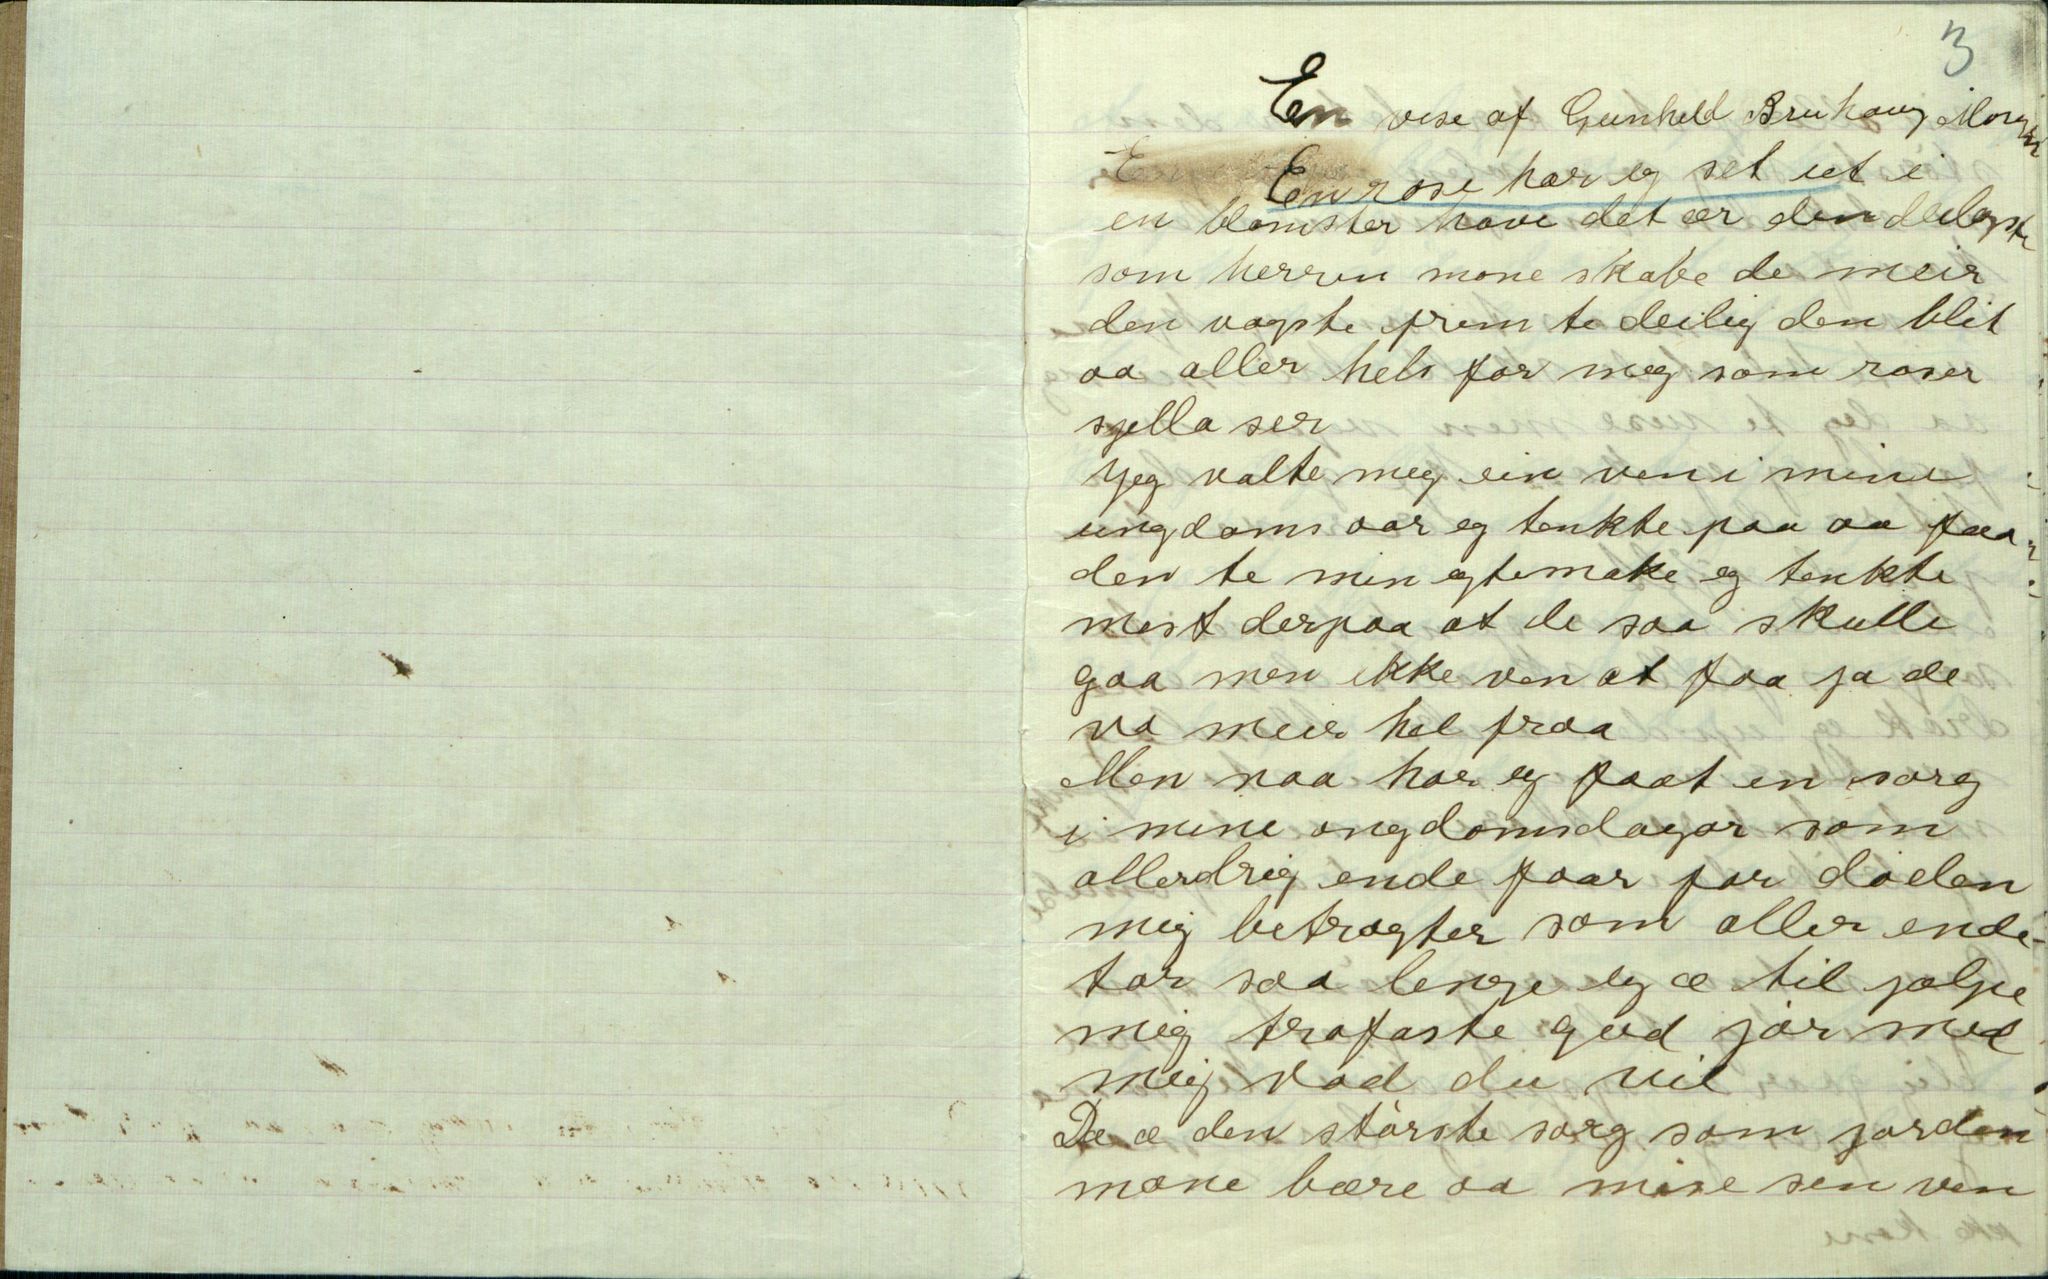 3
En vise af Gunhild Bruhaug
En rose har eg set ut i
en blomster have det ær den deilogste
som herren mone skabe de meir
den vogste frem te deilig den blit
aa aller hels for meg som roser
sjella ser
Jeg valte meg ein ven i mine
ungdoms aar eg tenkte paa aa faa
den te min egtemake eg tenkte
mest derpaa at de saa skulle
gaa men ikke ven at faa ja de
va meir hel fraa
Men naa har eg faat en sorg
i mine ongdomsdagar som
allerdrig ende faar før døden
mig betragter som aller ende
tar saa lenge eg æ til jælpe
mig trofaste gud jør med
meig vad du vil
Dæ æ den største sorg som jorden
mone bære aa mise sen ven